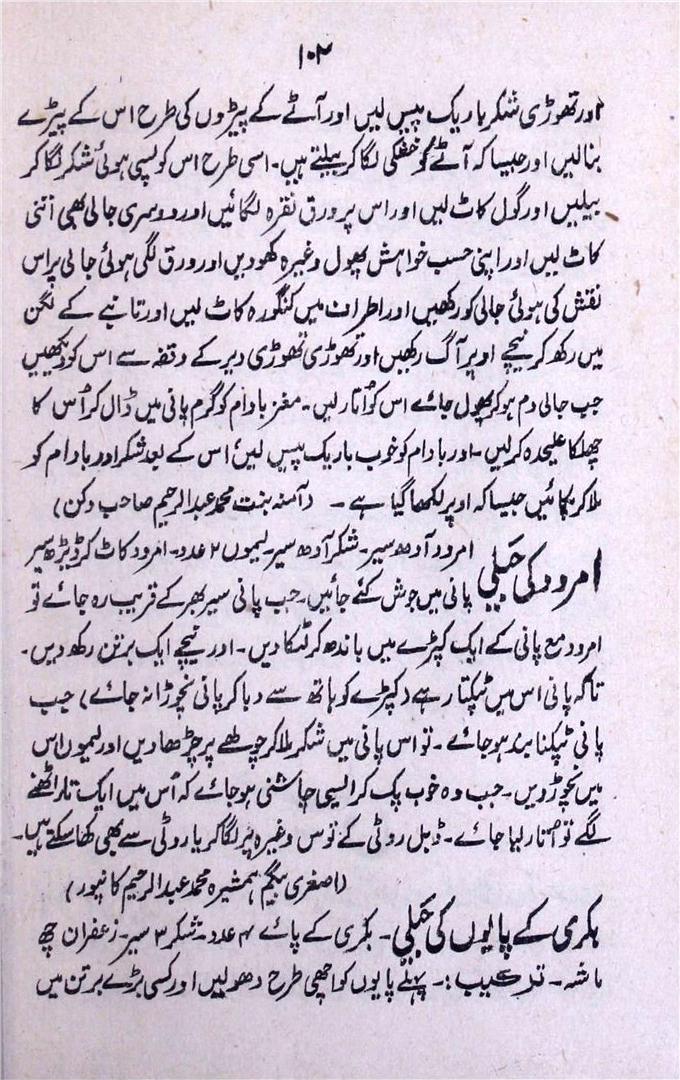 ۱۰۲
اور تھوڑی شکر باریک پیس لیں اور آٹے کے پیڑوں کی طرح اس کے پیڑے
بنالیں اور جیسا کہ آٹے کو خشکی لگا کر بیلتے ہیں۔ اسی طرح اس کو پسی ہوئی شکر لگا کر
بیلیں اور گول کاٹ لیں اور اس پر ورق نقرہ لگائیں اور دوسری جالی بھی اتنی
کاٹ لیں اور اپنی حسب خواہش پھول وغیرہ کھودیں اور ورق لگی ہوئی جالی پر اس
نقش کی ہوئی جالی کو رکھیں اور اطراف میں کنگورہ کاٹ لیں اور تانبے کے لگن
میں رکھ کر نیچے اوپر آگ رکھیں اور تھوڑی تھوڑی دیر کے وقفہ سے اس کو دیکھیں
جب جالی دم ہو کر پھول جائے اس کو اُتار لیں۔ مغز بادام کو گرم پانی میں ڈال کر اُس کا
چھلکا علیحدہ کرلیں۔ اور بادام کو خوب باریک پیس لیں اس کے بعد شکر اور بادام کو
ملا کر پکائیں جیسا کہ اوپر لکھا گیا ہے۔ (آمنہ بنت محمد عبدالرحیم صاحب دکن)
امرود کی جیلی امرود آدھ سیر۔ شکر آدھ سیر۔ لیموں ۲ عدد۔ امرود کاٹ کر ڈیڑھ سیر
پانی میں جوش کئے جائیں۔ جب پانی سیر بھر کے قریب رہ جائے تو
امرود مع پانی کے ایک کپڑے میں باندھ کر لٹکا دیں۔ اور نیچے ایک برتن رکھ دیں۔
تاکہ پانی اس میں ٹپکتا رہے (کپڑے کو ہاتھ سے دبا کر پانی نچوڑا نہ جائے) جب
پانی ٹپکنا بند ہو جائے۔ تو اس پانی میں شکر ملا کر چولھے پر چڑھا دیں اور لیموں اس
میں نچوڑ دیں۔ جب وہ خوب پک کر ایسی چاشنی ہو جائے کہ اُس میں ایک تار اٹھنے
لگے تو اُتار لیا جائے۔ ڈبل روٹی کے توس وغیرہ پر لگا کر یا روٹی سے بھی کھا سکتے ہیں۔
(اصغری بیگم ہمشیرہ محمد عبدالرحیم کانپور)
بکری کے پایوں کی جیلی۔ بکری کے پائے ۴ عدد۔ شکر ۳ سیر۔ زعفران چھ
ماشہ۔ ترکیب:۔ پہلے پایوں کو اچھی طرح دھولیں اور کسی بڑے برتن میں